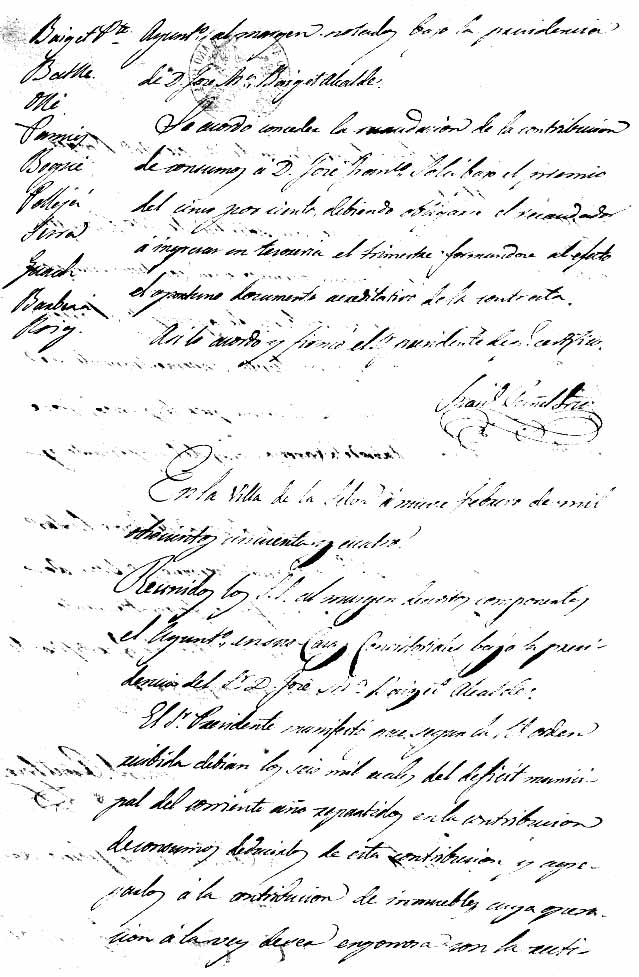 Baiget Pte
Batlle
Ollé
Pamies
Bogué
Pallejá
Serra
Guach
Barberá
Roig
Ayuntº. al margen notados bajo la presidencia
de D. José Mª. Baiget Alcalde.
Se acordo conceder la recaudacion de la contribucion
de consumos á D. José Franº. Solé bajo el premio
del cinco por ciento, debiendo obligarse el recaudador
á ingresar en tesoreria el trimestre formandose al efecto
el oportuno documento acreditativo de la contrata.
Asi lo acordo y firmó el Sr. presidente de q. certifico.
Franº.
En la Villa de la Selva á nueve febrero de mil
ochocientos cincuenta y cuatro.
Reunidos los S.S. al margen descritos componentes
el Ayuntº. en sus Casas Consistoriales bajo la presi-
dencia del Sr. D. José Mª. Baiget Alcalde.
El Sr. Presidente manifestó que segun la Rl. orden
recibida debian los seis mil reales del deficit munici-
pal del corriente año repartidos en la contribucion
de consumos deducirlos de esta contribucion y agre-
garlos á la contribucion de inmuebles, cuya opera-
cion á la vez de ser engorrosa con la recti-